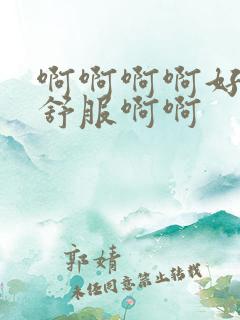 啊啊啊啊好
舒服啊啊
郭婧
未经同意禁止转载